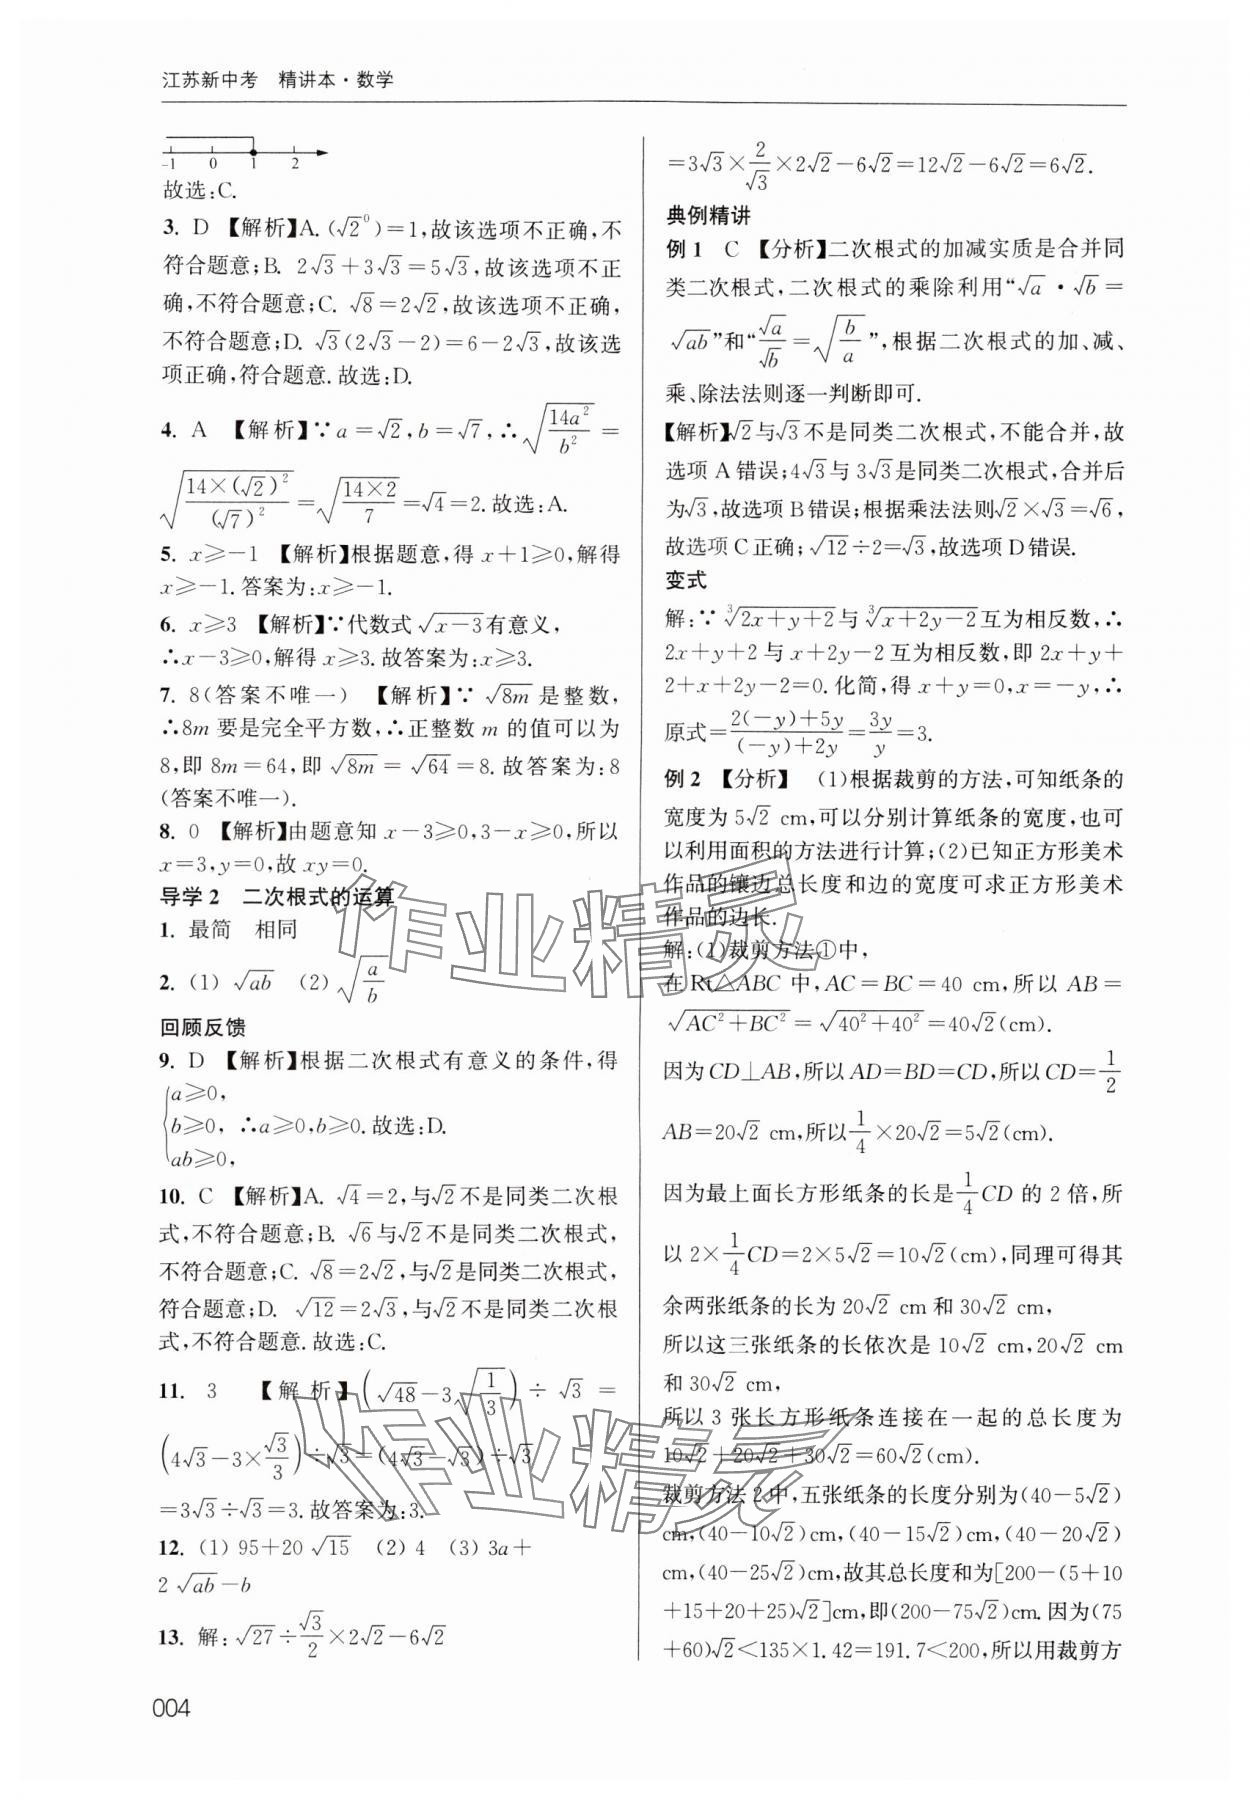 江苏新中考 精讲本·数学
-1 0 1 2
故选:C.
3. D 【解析】A. (√2⁰)=1,故该选项不正确,不
符合题意;B. 2√3+3√3=5√3,故该选项不正
确,不符合题意;C. √8=2√2,故该选项不正确,
不符合题意;D. √3(2√3-2)=6-2√3,故该选
项正确,符合题意.故选:D.
4. A 【解析】∵a=√2,b=√7,∴√(14a²/b²)=
√(14×(√2)²/(√7)²)=√(14×2/7)=√4=2.故选:A.
5. x≥-1 【解析】根据题意,得 x+1≥0,解得
x≥-1.答案为:x≥-1.
6. x≥3 【解析】∵代数式√(x-3)有意义,
∴x-3≥0,解得 x≥3.故答案为:x≥3.
7. 8(答案不唯一) 【解析】∵√(8m)是整数,
∴8m 要是完全平方数,∴正整数 m 的值可以为
8,即 8m=64,即√(8m)=√64=8.故答案为:8
(答案不唯一).
8. 0 【解析】由题意知 x-3≥0,3-x≥0,所以
x=3,y=0,故 xy=0.
导学2 二次根式的运算
1. 最简 相同
2. (1) √(ab) (2) √(a/b)
回顾反馈
9. D 【解析】根据二次根式有意义的条件,得
{a≥0,
b≥0, ∴a≥0,b≥0.故选:D.
ab≥0,
10. C 【解析】A. √4=2,与√2不是同类二次根
式,不符合题意;B. √6与√2不是同类二次根式,
不符合题意;C. √8=2√2,与√2是同类二次根式,
符合题意;D. √12=2√3,与√2不是同类二次根
式,不符合题意.故选:C.
11. 3 【解析】(√48-3√(1/3))÷√3=
(4√3-3×√3/3)÷√3=(4√3-√3)÷√3
=3√3÷√3=3.故答案为:3.
12. (1) 95+20√15 (2) 4 (3) 3a+
2√(ab)-b
13. 解:√27÷√3/2×2√2-6√2
004
=3√3×2/√3×2√2-6√2=12√2-6√2=6√2.
典例精讲
例1 C 【分析】二次根式的加减实质是合并同
类二次根式,二次根式的乘除利用“√a·√b=
√(ab)”和“√a/√b=√(b/a)”,根据二次根式的加、减、
乘、除法法则逐一判断即可.
【解析】√2与√3不是同类二次根式,不能合并,故
选项A错误;4√3与3√3是同类二次根式,合并后
为√3,故选项B错误;根据乘法法则√2×√3=√6,
故选项C正确;√12÷2=√3,故选项D错误.
变式
解:∵∛(2x+y+2)与∛(x+2y-2)互为相反数,∴
2x+y+2与x+2y-2互为相反数,即2x+y+
2+x+2y-2=0.化简,得 x+y=0,x=-y,∴
原式=(2(-y)+5y)/((-y)+2y)=3y/y=3.
例2 【分析】 (1)根据裁剪的方法,可知纸条的
宽度为5√2 cm,可以分别计算纸条的宽度,也可
以利用面积的方法进行计算;(2)已知正方形美术
作品的镶边总长度和边的宽度可求正方形美术
作品的边长.
解:(1)裁剪方法①中,
在Rt△ABC中,AC=BC=40 cm,所以AB=
√(AC²+BC²)=√(40²+40²)=40√2(cm).
因为CD⊥AB,所以AD=BD=CD,所以CD=1/2
AB=20√2 cm,所以1/4×20√2=5√2(cm).
因为最上面长方形纸条的长是1/4CD的2倍,所
以2×1/4CD=2×5√2=10√2(cm),同理可得其
余两张纸条的长为20√2 cm和30√2 cm,
所以这三张纸条的长依次是10√2 cm,20√2 cm
和30√2 cm,
所以3张长方形纸条连接在一起的总长度为
10√2+20√2+30√2=60√2(cm).
裁剪方法2中,五张纸条的长度分别为(40-5√2)
cm,(40-10√2)cm,(40-15√2)cm,(40-20√2)
cm,(40-25√2)cm,故其总长度和为[200-(5+10
+15+20+25)√2]cm,即(200-75√2)cm.因为(75
+60)√2<135×1.42=191.7<200,所以用裁剪方
作业精灵
作业精灵